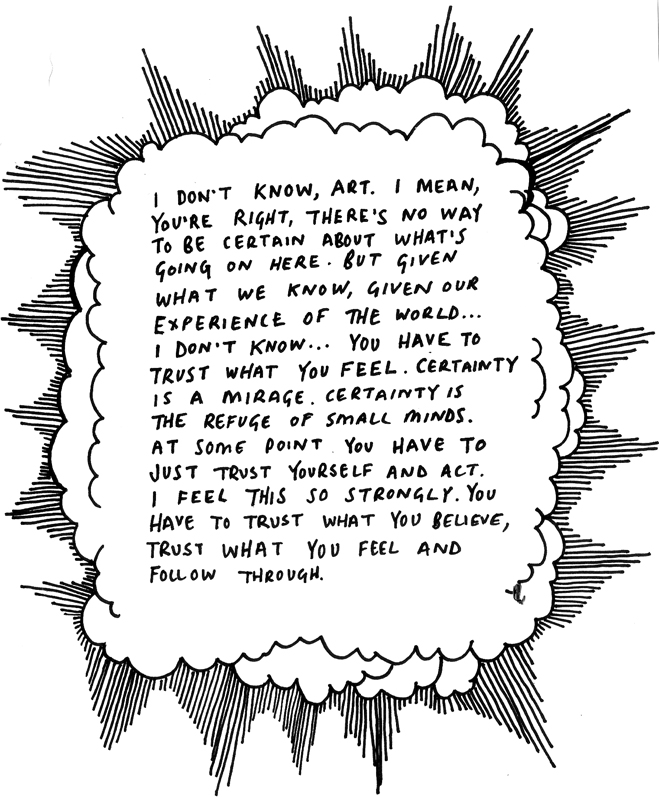 I DON'T KNOW, ART. I MEAN,
YOU'RE RIGHT, THERE'S NO WAY
TO BE CERTAIN ABOUT WHAT'S
GOING ON HERE. BUT GIVEN
WHAT WE KNOW, GIVEN OUR
EXPERIENCE OF THE WORLD...
I DON'T KNOW... YOU HAVE TO
TRUST WHAT YOU FEEL. CERTAINTY
IS A MIRAGE. CERTAINTY IS
THE REFUGE OF SMALL MINDS.
AT SOME POINT YOU HAVE TO
JUST TRUST YOURSELF AND ACT.
I FEEL THIS SO STRONGLY. YOU
HAVE TO TRUST WHAT YOU BELIEVE,
TRUST WHAT YOU FEEL AND
FOLLOW THROUGH.